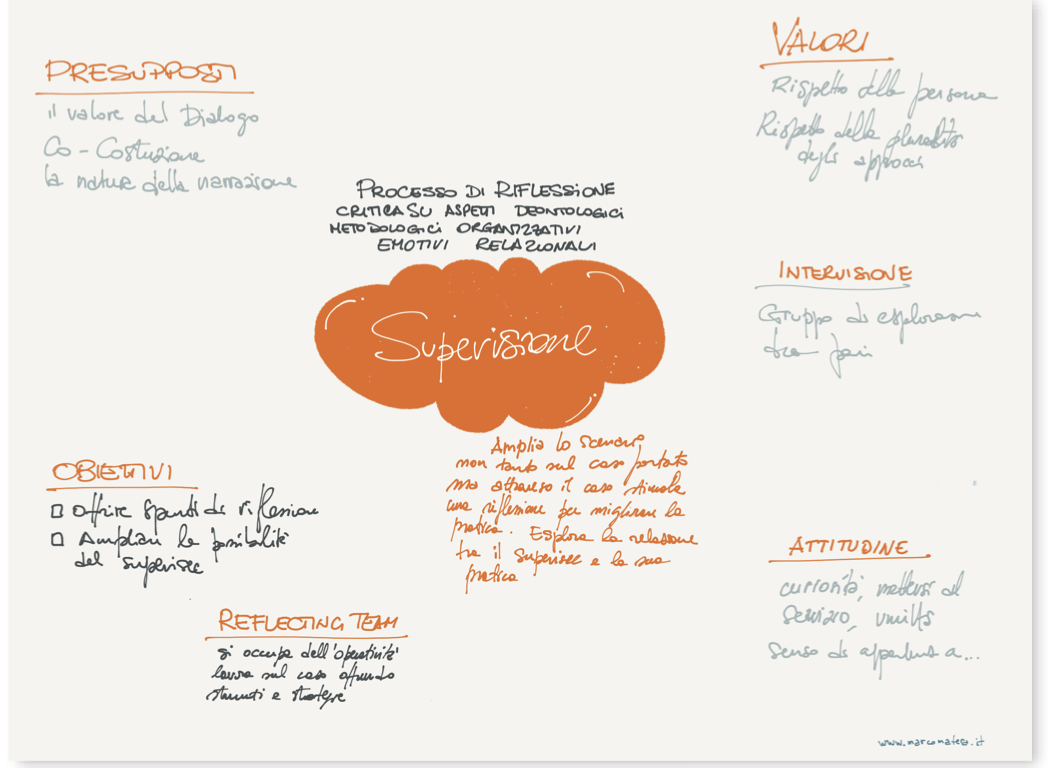 PRESUPPOSTI
il valore del Dialogo
Co - Costuzione
la natura della narrazione
VALORI
Rispetto della persona
Rispetto della pluralità
degli approcci
PROCESSO DI RIFLESSIONE
CRITICA SU ASPETTI DEONTOLOGICI
METODOLOGICI ORGANIZZATIVI
EMOTIVI RELAZIONALI
Supervisione
INTERVISIONE
Gruppo di esplorazione
tra pari
Amplia lo scenario,
non tanto sul caso portato
ma attraverso il caso stimola
una riflessione per migliorare la
pratica. Esplora la relazione
tra il supervisee e la sua
pratica
OBIETTIVI
Offrire spunti di riflessione
Ampliare le possibilità
del supervisee
REFLECTING TEAM
si occupa dell'operatività
lavora sul caso offrendo
strumenti e strategie
ATTITUDINE
curiosità, mettersi al
servizio, umiltà
senso di appartenenza...
www.marcomatera.it